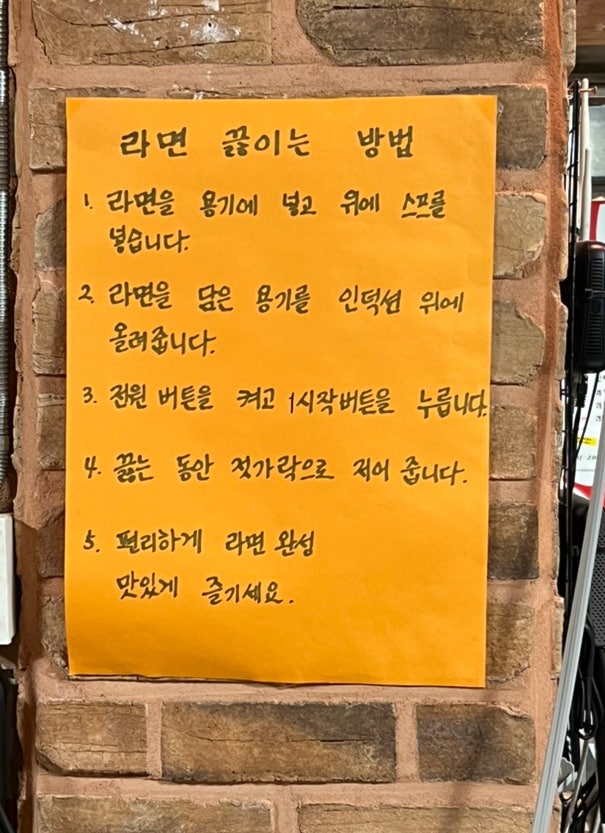 라면 끓이는 방법
1. 라면을 용기에 넣고 위에 스프를
넣습니다.
2. 라면을 담은 용기를 인덕션 위에
올려줍니다.
3. 전원 버튼을 켜고 1시작버튼을 누릅니다.
4. 끓는 동안 젓가락으로 저어 줍니다.
5. 편리하게 라면 완성
맛있게 즐기세요.